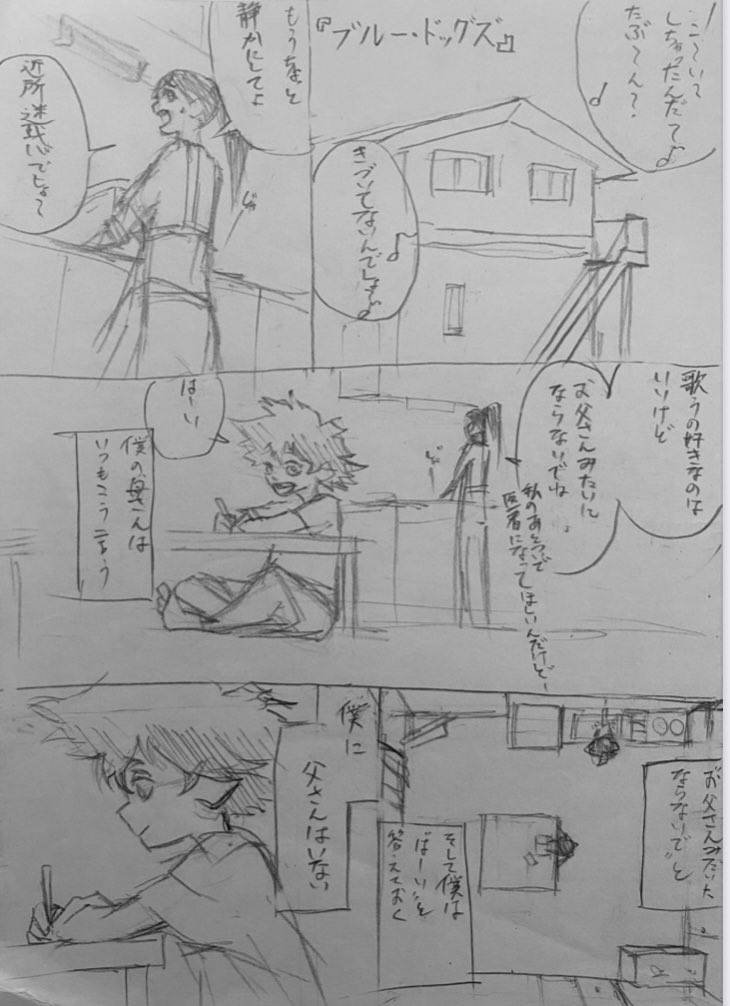 『ブルー・ドッグズ』
しちゃったんだって♪
たぶ〜ん？
♪
きづいてないんでしょ♪
♪
もうちょっと
静かにしてよ
近所迷惑でしょ〜
歌うの好きなのは
いいけど
お父さんみたいに
ならないでね
私のあとついで
医者になってほしいんだけどー
はーい
僕の母さんは
いつもこう言う
お父さんみたいに
ならないで”と
そして僕は
“はーい”と
答えておく
僕に
父さんはいない